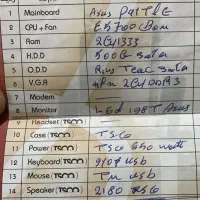 1 Mainboard Asus P41TLE
2 CPU+Fan E5700 Box
3 Ram 2G/1333
4 H.D.D 500G sata
5 O.D.D R/w Teac sata
6 V.G.A 2G/DDR3
7 Modem
8 Monitor Led 19BT Asus
9 Headset (TSCO) —
10 Case (TSCO) TSCO
11 Power (TSCO) TSCO 650 watt
12 Keyboard (TSCO) usb
13 Mouse (TSCO) TM usb
14 Speaker (TSCO) 2180 TSCO